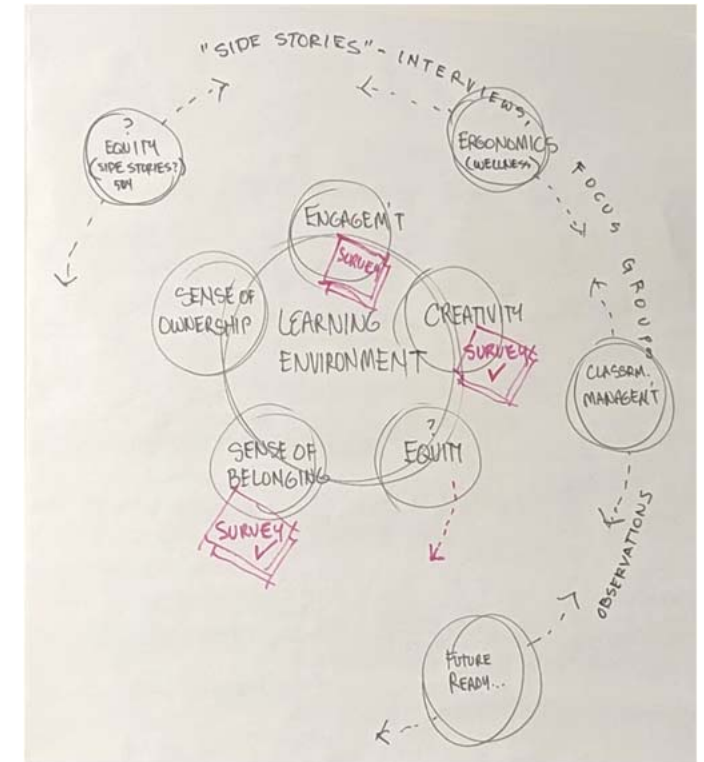 "SIDE STORIES" - INTERVIEWS,
FOCUS GROUPS
OBSERVATIONS
?
EQUITY
(SIDE STORIES?)
504
ERGONOMICS
(WELLNESS)
ENGAGEM'T
SURVEY
SENSE OF
OWNERSHIP
LEARNING
ENVIRONMENT
CREATIVITY
SURVEY
✓
CLASSRM.
MANAGEN'T
SENSE OF
BELONGING
?
EQUITY
SURVEY
✓
FUTURE
READY...